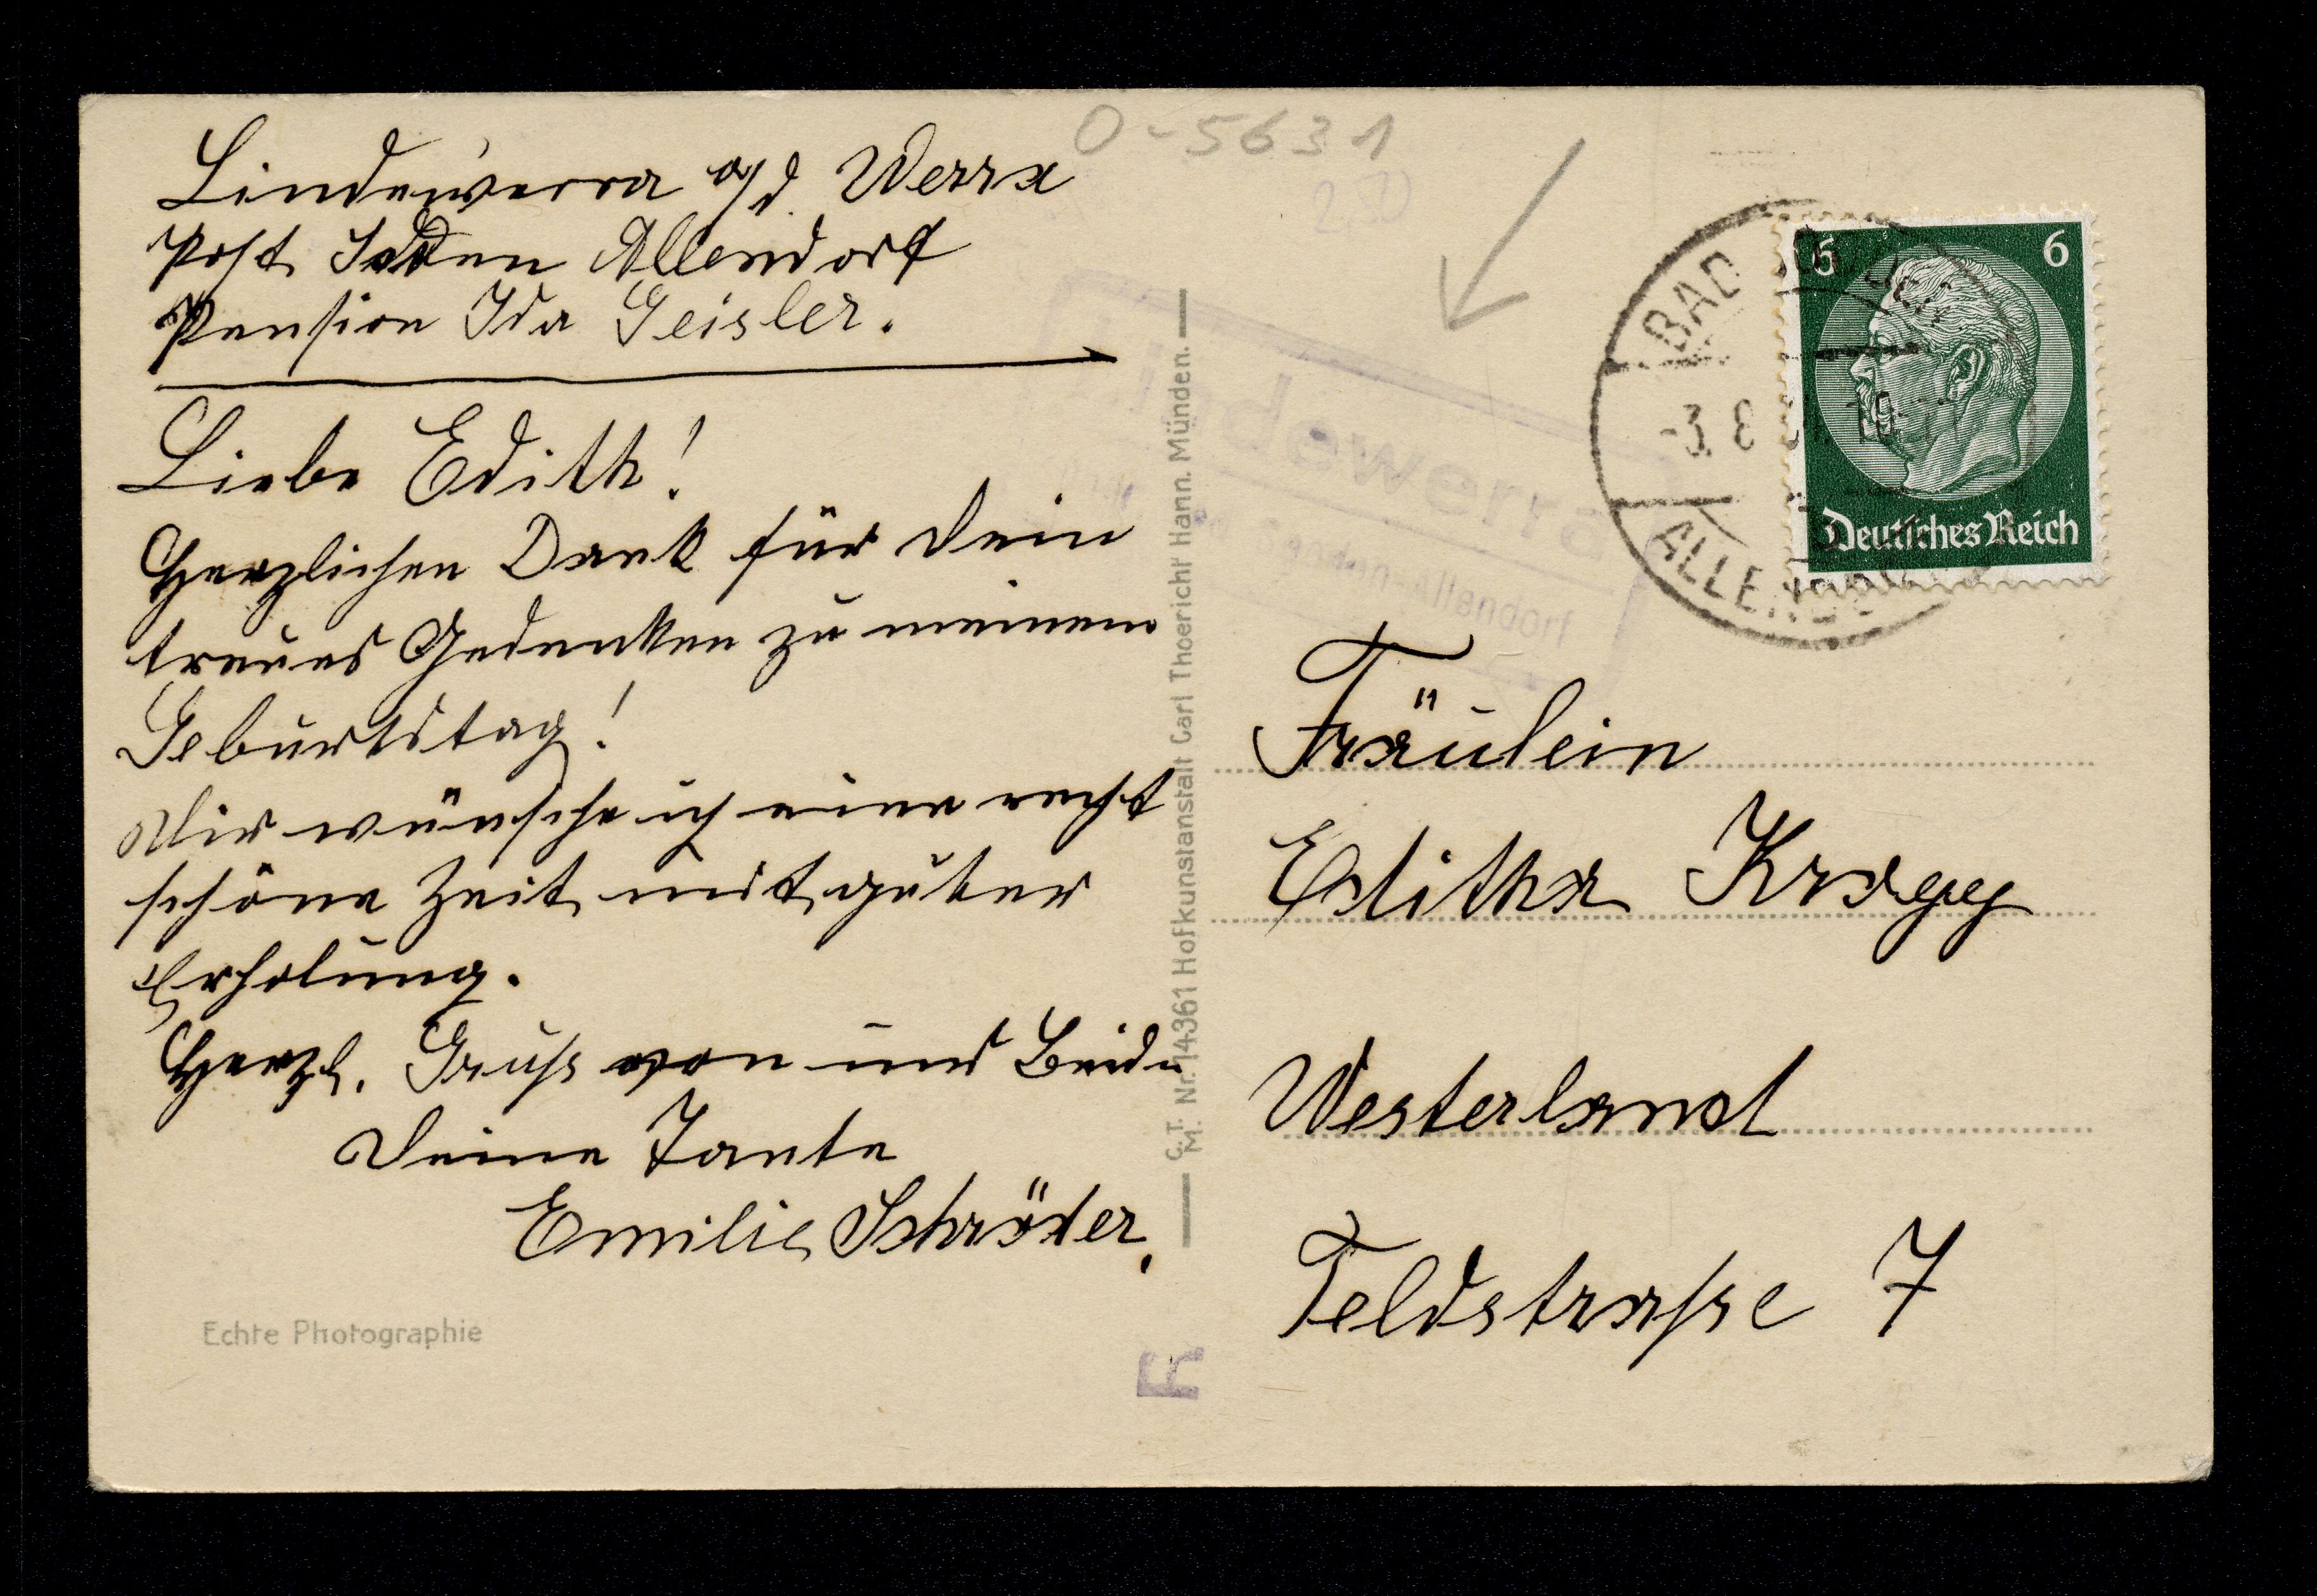 Lindewerra a/d. Werra
Post Sooden Allendorf
Pension Ida Geisler.
Liebe Edith!
Herzlichen Dank für Dein
treues Gedenken zu meinem
Geburtstag!
Dir wünsche ich eine recht
schöne Zeit mit guter
Erholung.
Herzl. Gruß von uns Beide
Deine Tante
Emilie Schröder.
Echte Photographie
C.T. M. Nr. 14361 Hofkunstanstalt Carl Thoericht Hann. Münden.
O-5631
20
Lindewerra
Allendorf
BAD
-3 8
ALLENDORF
6 6
Deutsches Reich
Fräulein
Editha Kragg
Westerland
Feldstraße 7
R